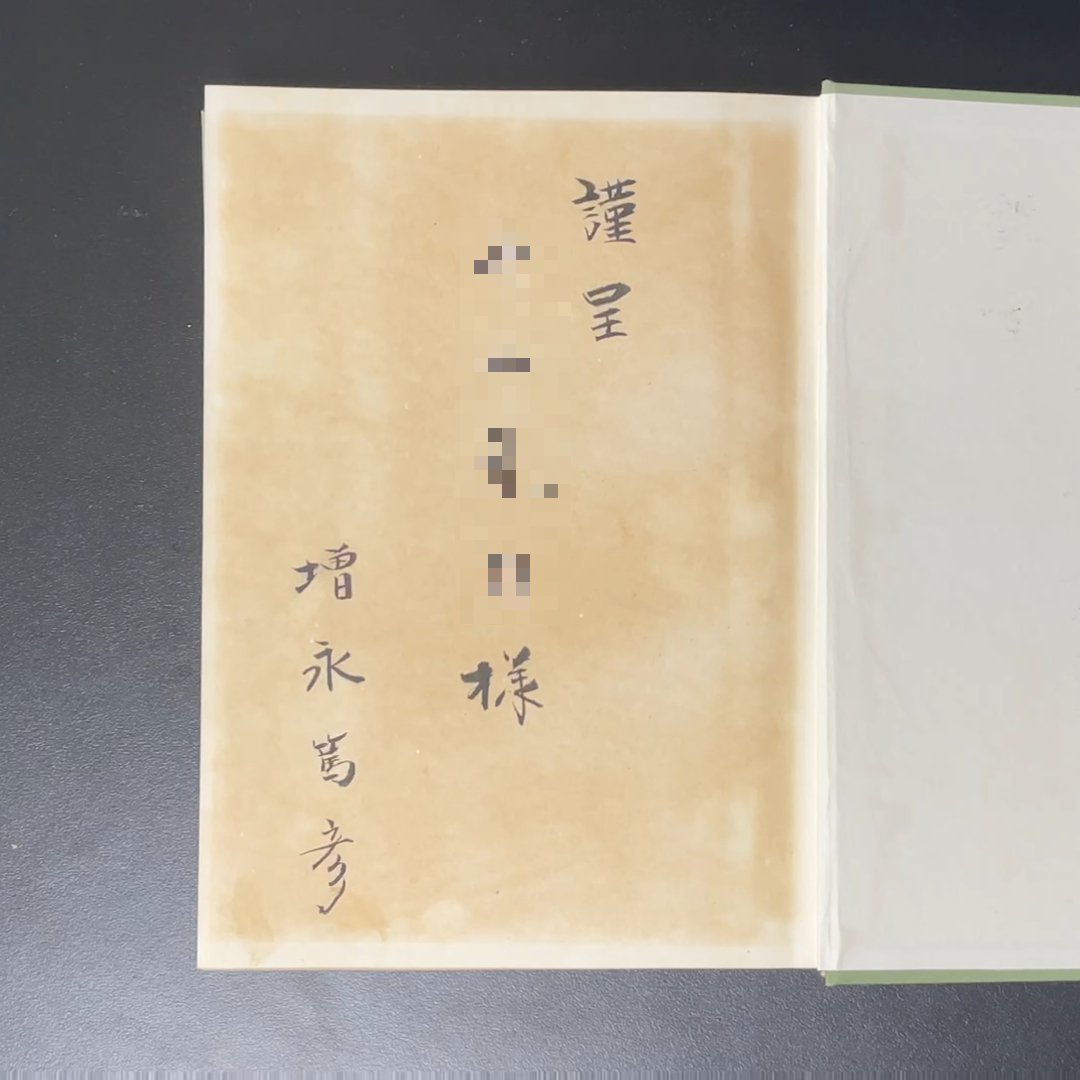 謹呈
様
増永篤彦